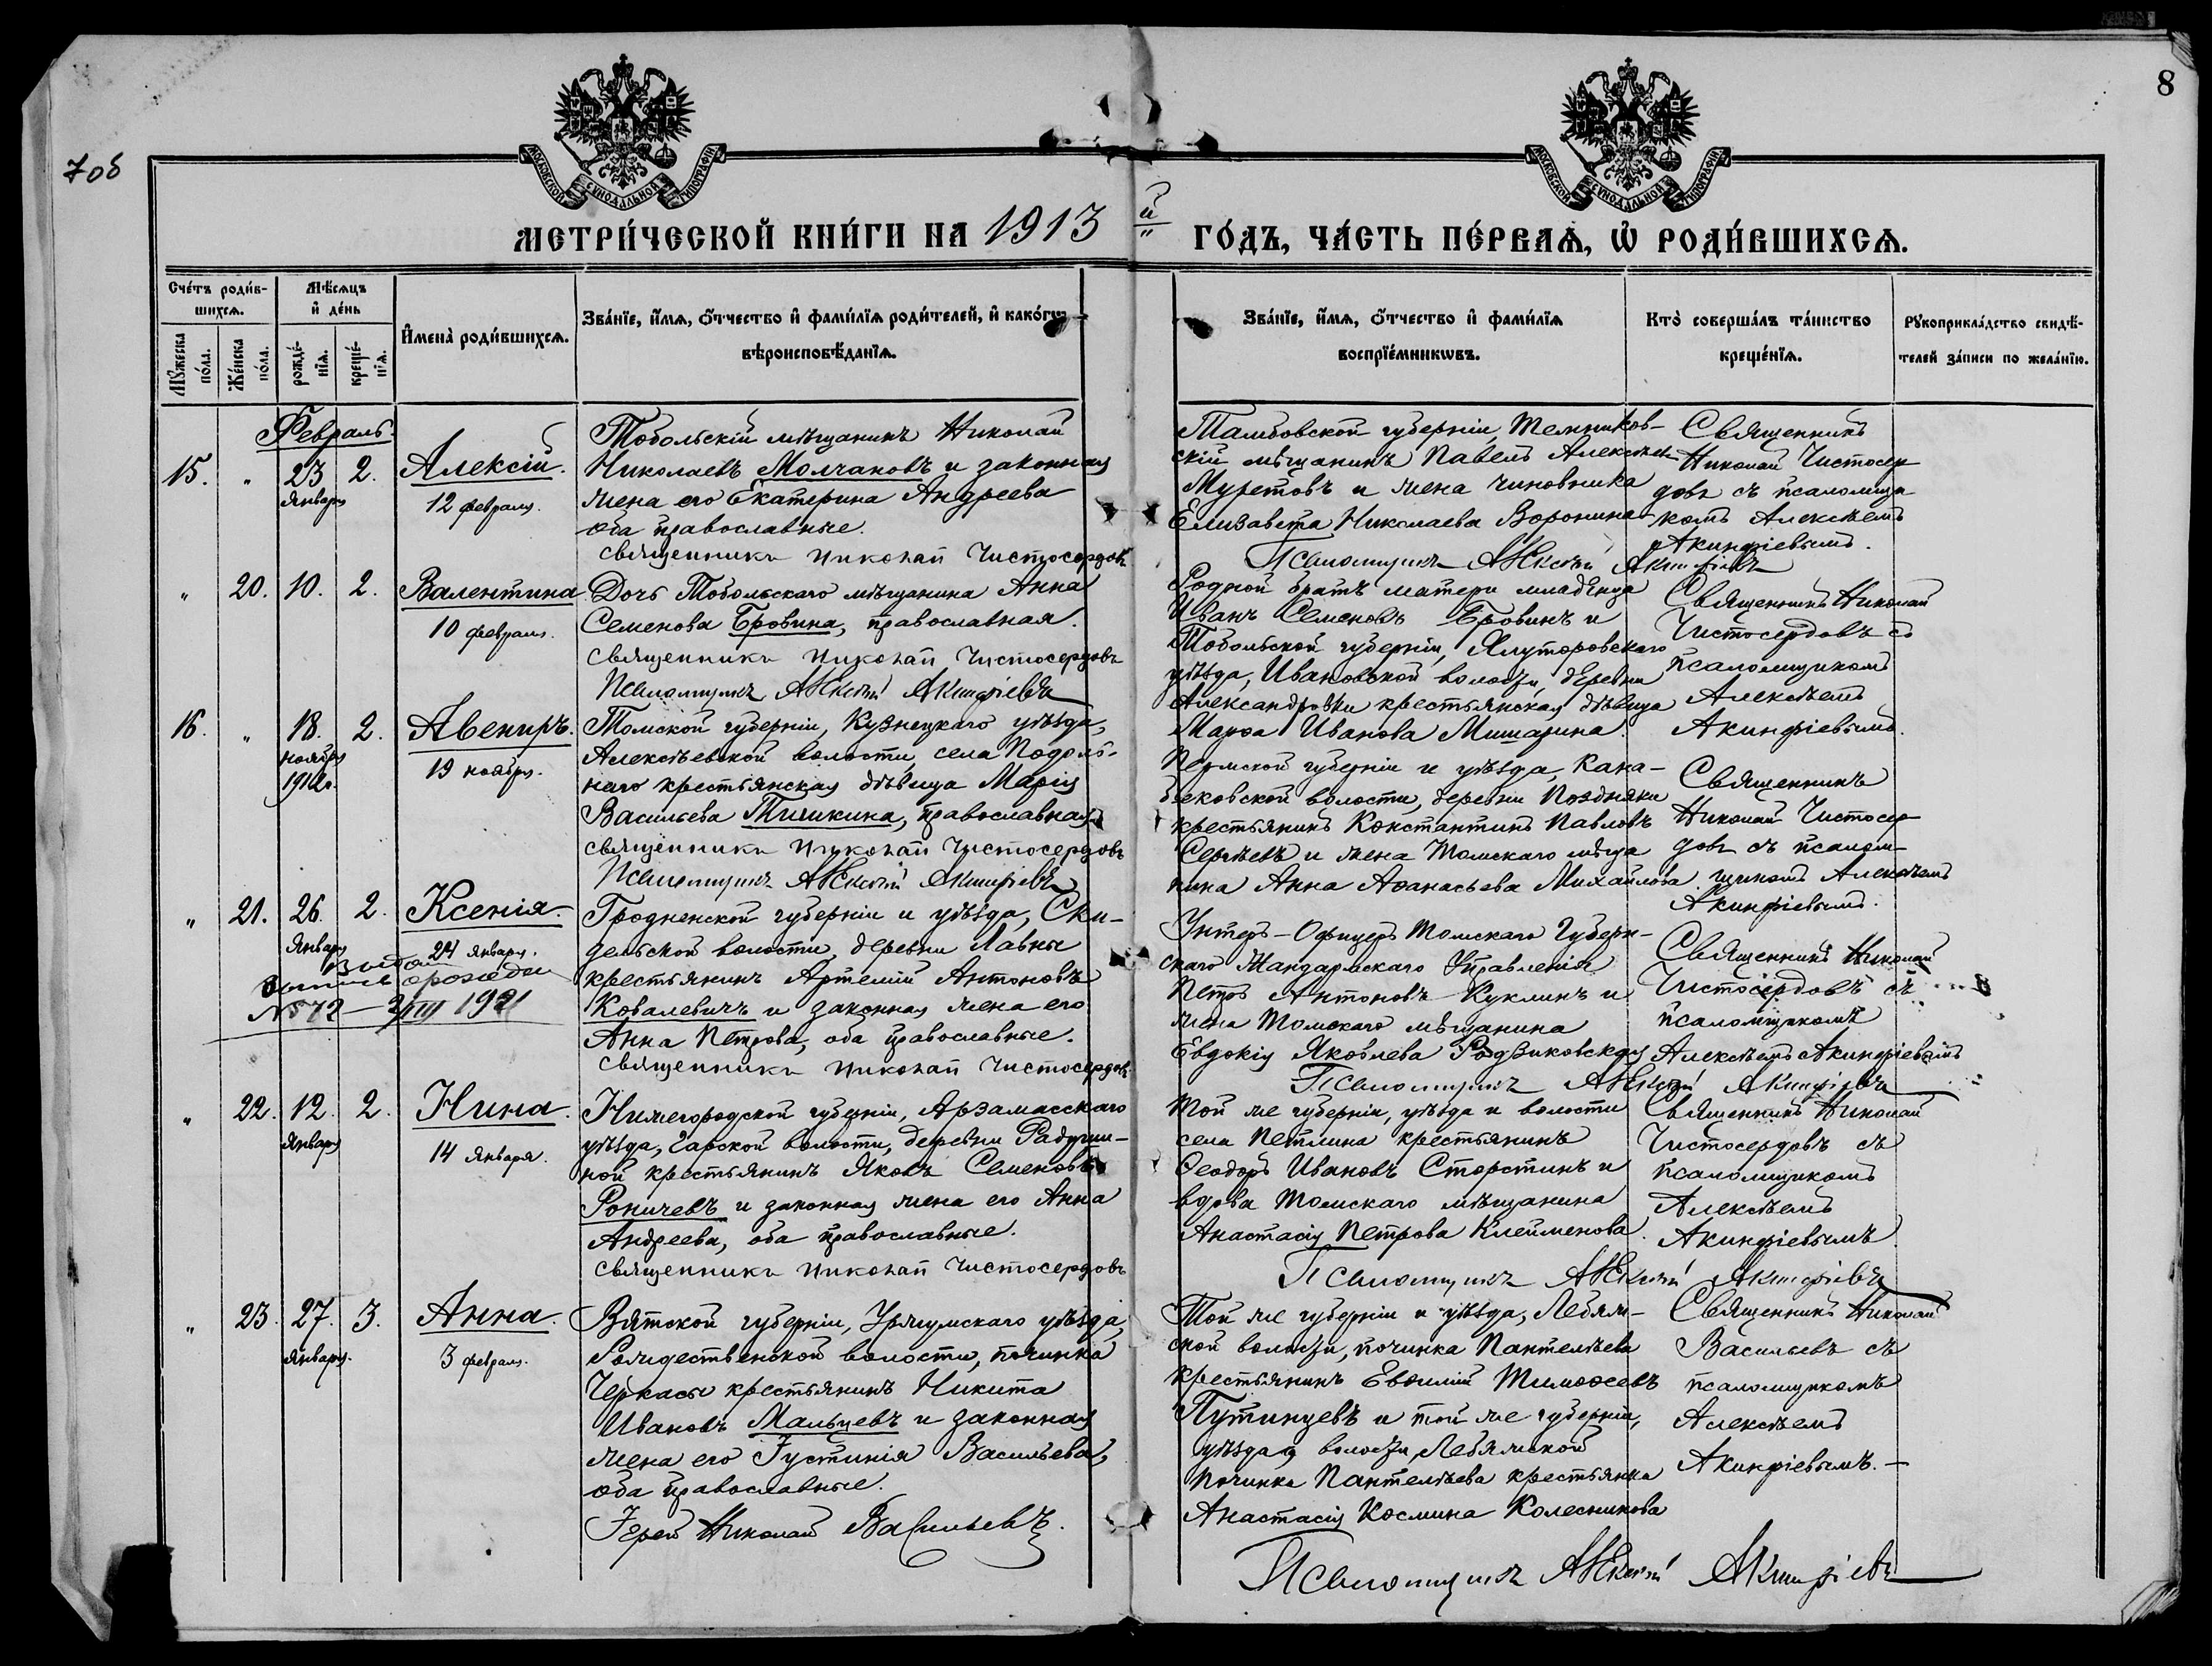 8
7 об
МОСКОВСКОЙ СѴНОДАЛЬНОЙ ТИПОГРАФІИ
МОСКОВСКОЙ СѴНОДАЛЬНОЙ ТИПОГРАФІИ
МЕТРИ́ЧЕСКОЙ КНИ́ГИ НА 1913 й ГО́ДЪ, ЧА́СТЬ ПЕ́РВАѦ, Ѽ РОДИ́ВШИХСѦ.
Сче́тъ роди́в-
шихсѧ.
Мѣ́сѧцъ
и҆ де́нь
Мꙋ́жеска по́ла.
Же́нска по́ла.
рожде́-нїѧ.
креще́-нїѧ.
И҆мена̀ роди́вшихсѧ.
Зва́нїе, и҆́мѧ, ѻ҆́тчество и҆ фами́лїѧ роди́телей, и҆ како́гѡ
вѣроисповѣ́данїѧ.
Зва́нїе, и҆́мѧ, ѻ҆́тчество и҆ фами́лїѧ
воспрїе́мникѡвъ.
Кто̀ соверша́лъ та́инство
креще́нїѧ.
Рꙋкоприкла́дство свидѣ́-
телей за́писи по жела́нїю.
Февраль.
15. " 23 Января 2. Алексій. 12 февраля.
Тобольскій мѣщанинъ Николай
Николаевъ Молчановъ и законная
жена его Екатерина Андреева
оба православные.
Священникъ Николай Чистосердовъ
Тамбовской губерніи, Темников-
скій мѣщанинъ Павелъ Алексѣевъ
Муретовъ и жена чиновника
Елизавета Николаева Воронина
Священникъ
Николай Чистосер-
довъ съ псаломщи-
комъ Алексѣемъ
Акинфіевымъ.
Псаломщикъ Алексѣй Акинфіевъ
" 20. 10. 2. Валентина 10 февраля.
Дочь Тобольскаго мѣщанина Анна
Семенова Бровина, православная.
Священникъ Николай Чистосердовъ
Псаломщикъ Алексѣй Акинфіевъ
Родной братъ матери младенца
Иванъ Семеновъ Бровинъ и
Тобольской губерніи, Ялуторовскаго
уѣзда, Ивановской волости, деревни
Александровки крестьянская дѣвица
Марѳа Иванова Мишарина.
Священникъ Николай
Чистосердовъ съ
псаломщикомъ
Алексѣемъ
Акинфіевымъ.
16. " 18. ноября 1912г. 2. Авениръ. 19 ноября.
Томской губерніи, Кузнецкаго уѣзда,
Алексѣевской волости, села Подоль-
наго крестьянская дѣвица Марія
Васильева Тишкина, православная
Священникъ Николай Чистосердовъ
Псаломщикъ Алексѣй Акинфіевъ
Пермской губерніи и уѣзда, Кана-
бековской волости, деревни Поздняки
крестьянинъ Константинъ Павловъ
Сергѣевъ и жена Томскаго мѣща
нина Анна Аѳанасьева Михайлова.
Священникъ
Николай Чистосер-
довъ съ псалом-
щикомъ Алексѣемъ
Акинфіевымъ.
" 21. 26. Января 2. Ксенія. 24 января.
Выдан
выпись о рожден
№ 72 – 3/III 1921
Гродненской губерніи и уѣзда, Ски-
дельской волости, деревни Лавны
крестьянинъ Артемій Антоновъ
Ковалевичъ и законная жена его
Анна Петрова, оба православные.
Священникъ Николай Чистосердовъ
Унтеръ-Офицеръ Томскаго Губерн-
скаго Жандармскаго Управленія
Петръ Антоновъ Куклинъ и
жена Томскаго мѣщанина
Евдокія Яковлева Родзиковская
Священникъ Николай
Чистосердовъ съ
псаломщикомъ
Алексѣемъ Акинфіевымъ
Псаломщикъ Алексѣй Акинфіевъ
" 22. 12. Января 2. Нина. 14 Января.
Нижегородской губерніи, Арзамасскаго
уѣзда, Чарской волости, деревни
крестьянинъ Яковъ Семеновъ
Роничевъ и законная жена его Анна
Андреева, оба православные.
Священникъ Николай Чистосердовъ
Той же губерніи, уѣзда и волости
села Петлина крестьянинъ
Ѳеодоръ Ивановъ Старстинъ и
вдова Томскаго мѣщанина
Анастасія Петрова Клейменова.
Священникъ Николай
Чистосердовъ съ
псаломщикомъ
Алексѣемъ
Акинфіевымъ.
Псаломщикъ Алексѣй Акинфіевъ
" 23. 27. Января. 3. Анна. 3 февраля.
Вятской губерніи, Уржумскаго уѣзда,
Рождественской волости, починка
Черкасы крестьянинъ Никита
Ивановъ Мальцевъ и законная
жена его Іустинія Васильева,
оба православные.
Іерей Николай Васильевъ.
Той же губерніи и уѣзда, Лебяж-
ской волости, починка Пантелѣева
крестьянинъ Евѳимій Тимоѳеевъ
Путинцевъ и той же губерніи,
уѣзда, волости, Лебяжской
починка Пантелѣева крестьянка
Анастасія Космина Колесникова
Священникъ Николай
Васильевъ съ
псаломщикомъ
Алексѣемъ
Акинфіевымъ.–
Псаломщикъ Алексѣй Акинфіевъ